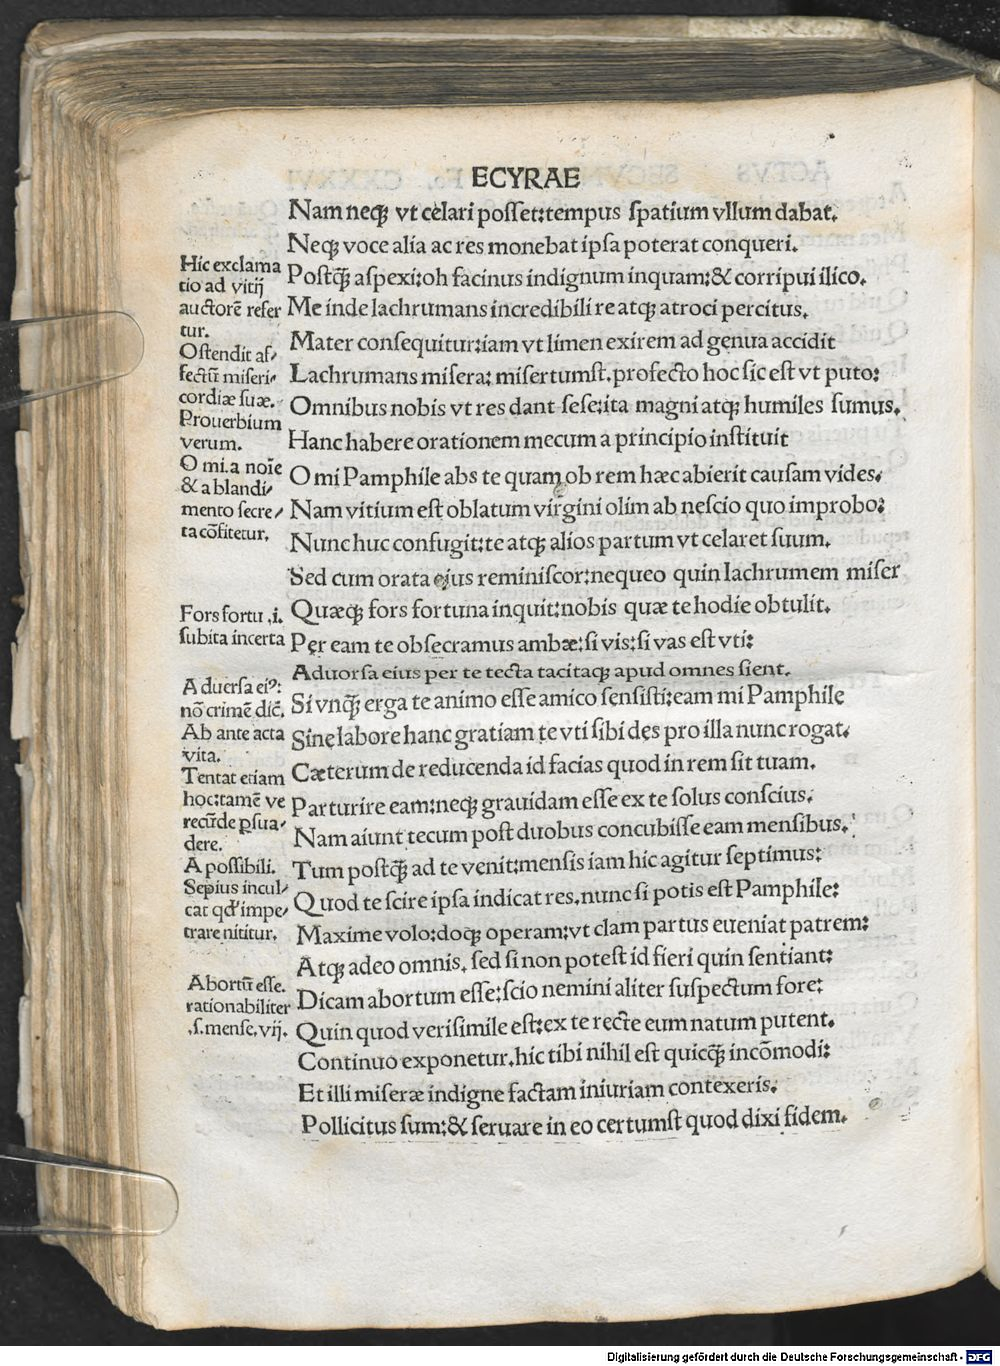 ECYRAE
Nam neqꝫ vt cęlari posset:tempus spatium vllum dabat.
Neqꝫ voce alia ac res monebat ipsa poterat conqueri.
Postꝙ̃ aspexi:oh facinus indignum inquam:& corripui ilico.
Me inde lachrumans incredibili re atqꝫ atroci percitus.
Mater consequitur:iam vt limen exirem ad genua accidit
Lachrumans misera: misertumst.profecto hoc sic est vt puto:
Omnibus nobis vt res dant sese:ita magni atqꝫ humiles sumus.
Hanc habere orationem mecum a principio instituit
O mi Pamphile abs te quam ob rem hæc abierit causam vides.
Nam vitium est oblatum virgini olim ab nescio quo improbo:
Nunc huc confugit:te atqꝫ alios partum vt celaret suum.
Sed cum orata ejus reminiscor:nequeo quin lachrumem miser
Quæqꝫ fors fortuna inquit:nobis quæ te hodie obtulit.
Per eam te obsecramus ambæ:si vis:si vas est vti:
Aduorsa eius per te tecta tacitaqꝫ apud omnes sient.
Si vnꝙ̃ erga te animo esse amico sensisti:eam mi Pamphile
Sine labore hanc gratiam te vti sibi des pro illa nunc rogat.
Cæterum de reducenda id facias quod in rem sit tuam.
Parturire eam:neqꝫ grauidam esse ex te solus conscius.
Nam aiunt tecum post duobus concubisse eam mensibus.
Tum postꝙ̃ ad te venit:mensis iam hic agitur septimus:
Quod te scire ipsa indicat res.nunc si potis est Pamphile:
Maxime volo:doqꝫ operam:vt clam partus eueniat patrem:
Atqꝫ adeo omnis. sed si non potest id fieri quin sentiant:
Dicam abortum esse:scio nemini aliter suspectum fore:
Quin quod verisimile est:ex te recte eum natum putent.
Continuo exponetur.hic tibi nihil est quicꝙ̃ incōmodi:
Et illi miseræ indigne factam iniuriam contexeris.
Pollicitus sum:& seruare in eo certumst quod dixi fidem.
Hic exclama
tio ad vitij
auctorē refer
tur.
Ostendit af⸗
fectū miseri⸗
cordiæ suæ.
Prouerbium
verum.
O mi.a noīe
& a blandi⸗
mento secre⸗
ta cōfitetur.
Fors fortu .i.
subita incerta
Aduersa eiꝰ:
nō crimē dic̄.
Ab ante acta
vita.
Tentat etiam
hoc:tamē ve
recūde ꝑsua⸗
dere.
A possibili.
Sepius incul⸗
cat qđ impe⸗
trare nititur.
Abortū esse.
rationabiliter
.s.mense.vij.
Digitalisierung gefördert durch die Deutsche Forschungsgemeinschaft - DFG